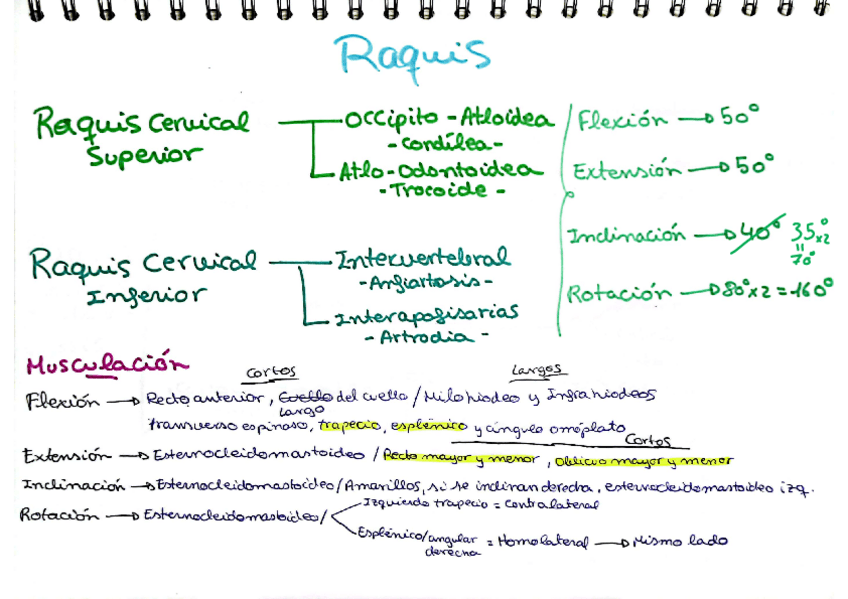 Raquis
Raquis Cervical Superior
Occipito - Atloidea
- Condílea -
Atlo-Odontoidea
- Trocoide -
Flexión → 50°
Extensión → 50°
Inclinación → 40° 35°x2
=
70°
Rotación → 80°x2 = 160°
Raquis Cervical Inferior
Intervertebral
- Anfiartosis -
Interapofisarias
- Artrodia -
Musculación
Cortos
Largos
Flexión → Recto anterior, Cuello largo del cuello / Milohiodeo y Infrahiodeos
transverso espinoso, trapecio, esplénico y cíngulo omóplato
Cortos
Extensión → Esternocleidomastoideo / Recto mayor y menor, Oblicuo mayor y menor
Inclinación → Esternocleidomastoideo / Amarillos, si se inclinan derecha, esternocleidomastoideo izq.
Rotación → Esternocleidomastoideo /
Izquierdo trapecio = contralateral
Esplénico/angular derecha = Homolateral → Mismo lado